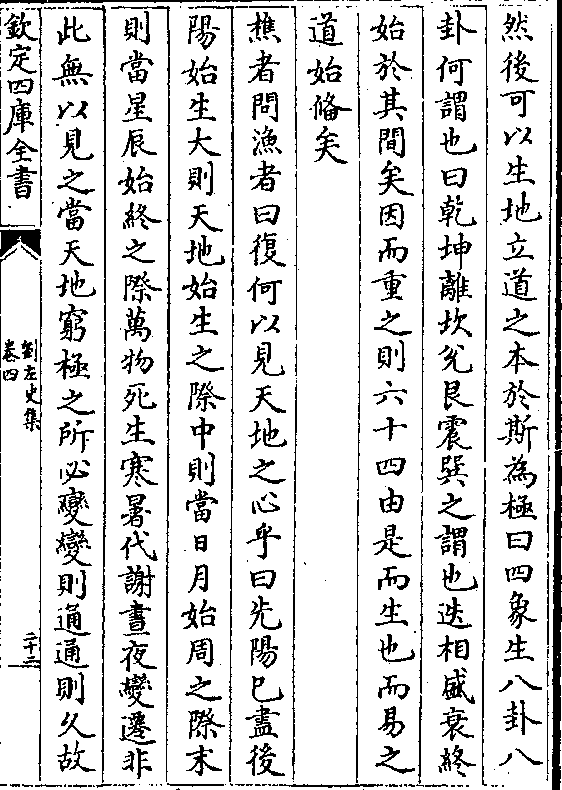 然後可以生地立道之本於斯為極曰四象生八卦八
卦何謂也曰乾坤離坎兊艮震巽之謂也迭相盛衰終
始於其間矣因而重之則六十四由是而生也而易之
道始備矣
樵者問漁者曰復何以見天地之心乎曰先陽已盡後
陽始生大則天地始生之際中則當日月始周之際末
則當星辰始終之際萬物死生寒暑代謝晝夜變遷非
此無以見之當天地窮極之所必變變則通通則久故
欽定四庫全書
劉左史集
卷四
二十三